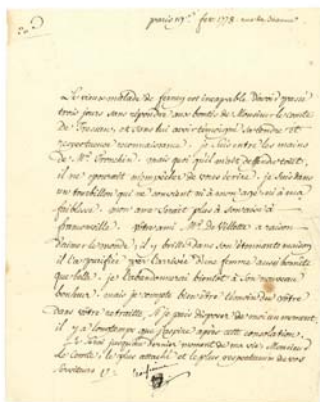 paris 19e fev 1778
Le vieux malade de ferney est incapable d'avoir passé
trois jours sans répondre aux bontés de Monsieur le comte
de et sans lui avoir témoigné sa tendre et
respectueuse reconnaissance. je suis entre les mains
de Mr. Tronchin. mais quoi qu'il m'ait deffendu tout,
il ne pouvait m'empêcher de vous écrire. je suis dans
un tourbillon qui ne convient ni à mon age, ni à ma
faiblesse. mon ame serait plus à son aise à
franconville. votre ami Mr. de Villette a raison
d'aimer le monde, il y brille dans son étonnante maison
il l'a purifiée par l'arrivée d'une femme aussi honnête
que belle. je l'abandonnerai bientôt à son nouveau
bonheur. mais je compte bien être témoin du vôtre
dans votre retraitte. Si je puis disposer de moi un moment.
il y a longtemps que j'aspire après cette consolation.
je serai jusqu'au dernier moment de ma vie, Monsieur
le Comte, le plus attaché et le plus respectueux de vos
serviteurs